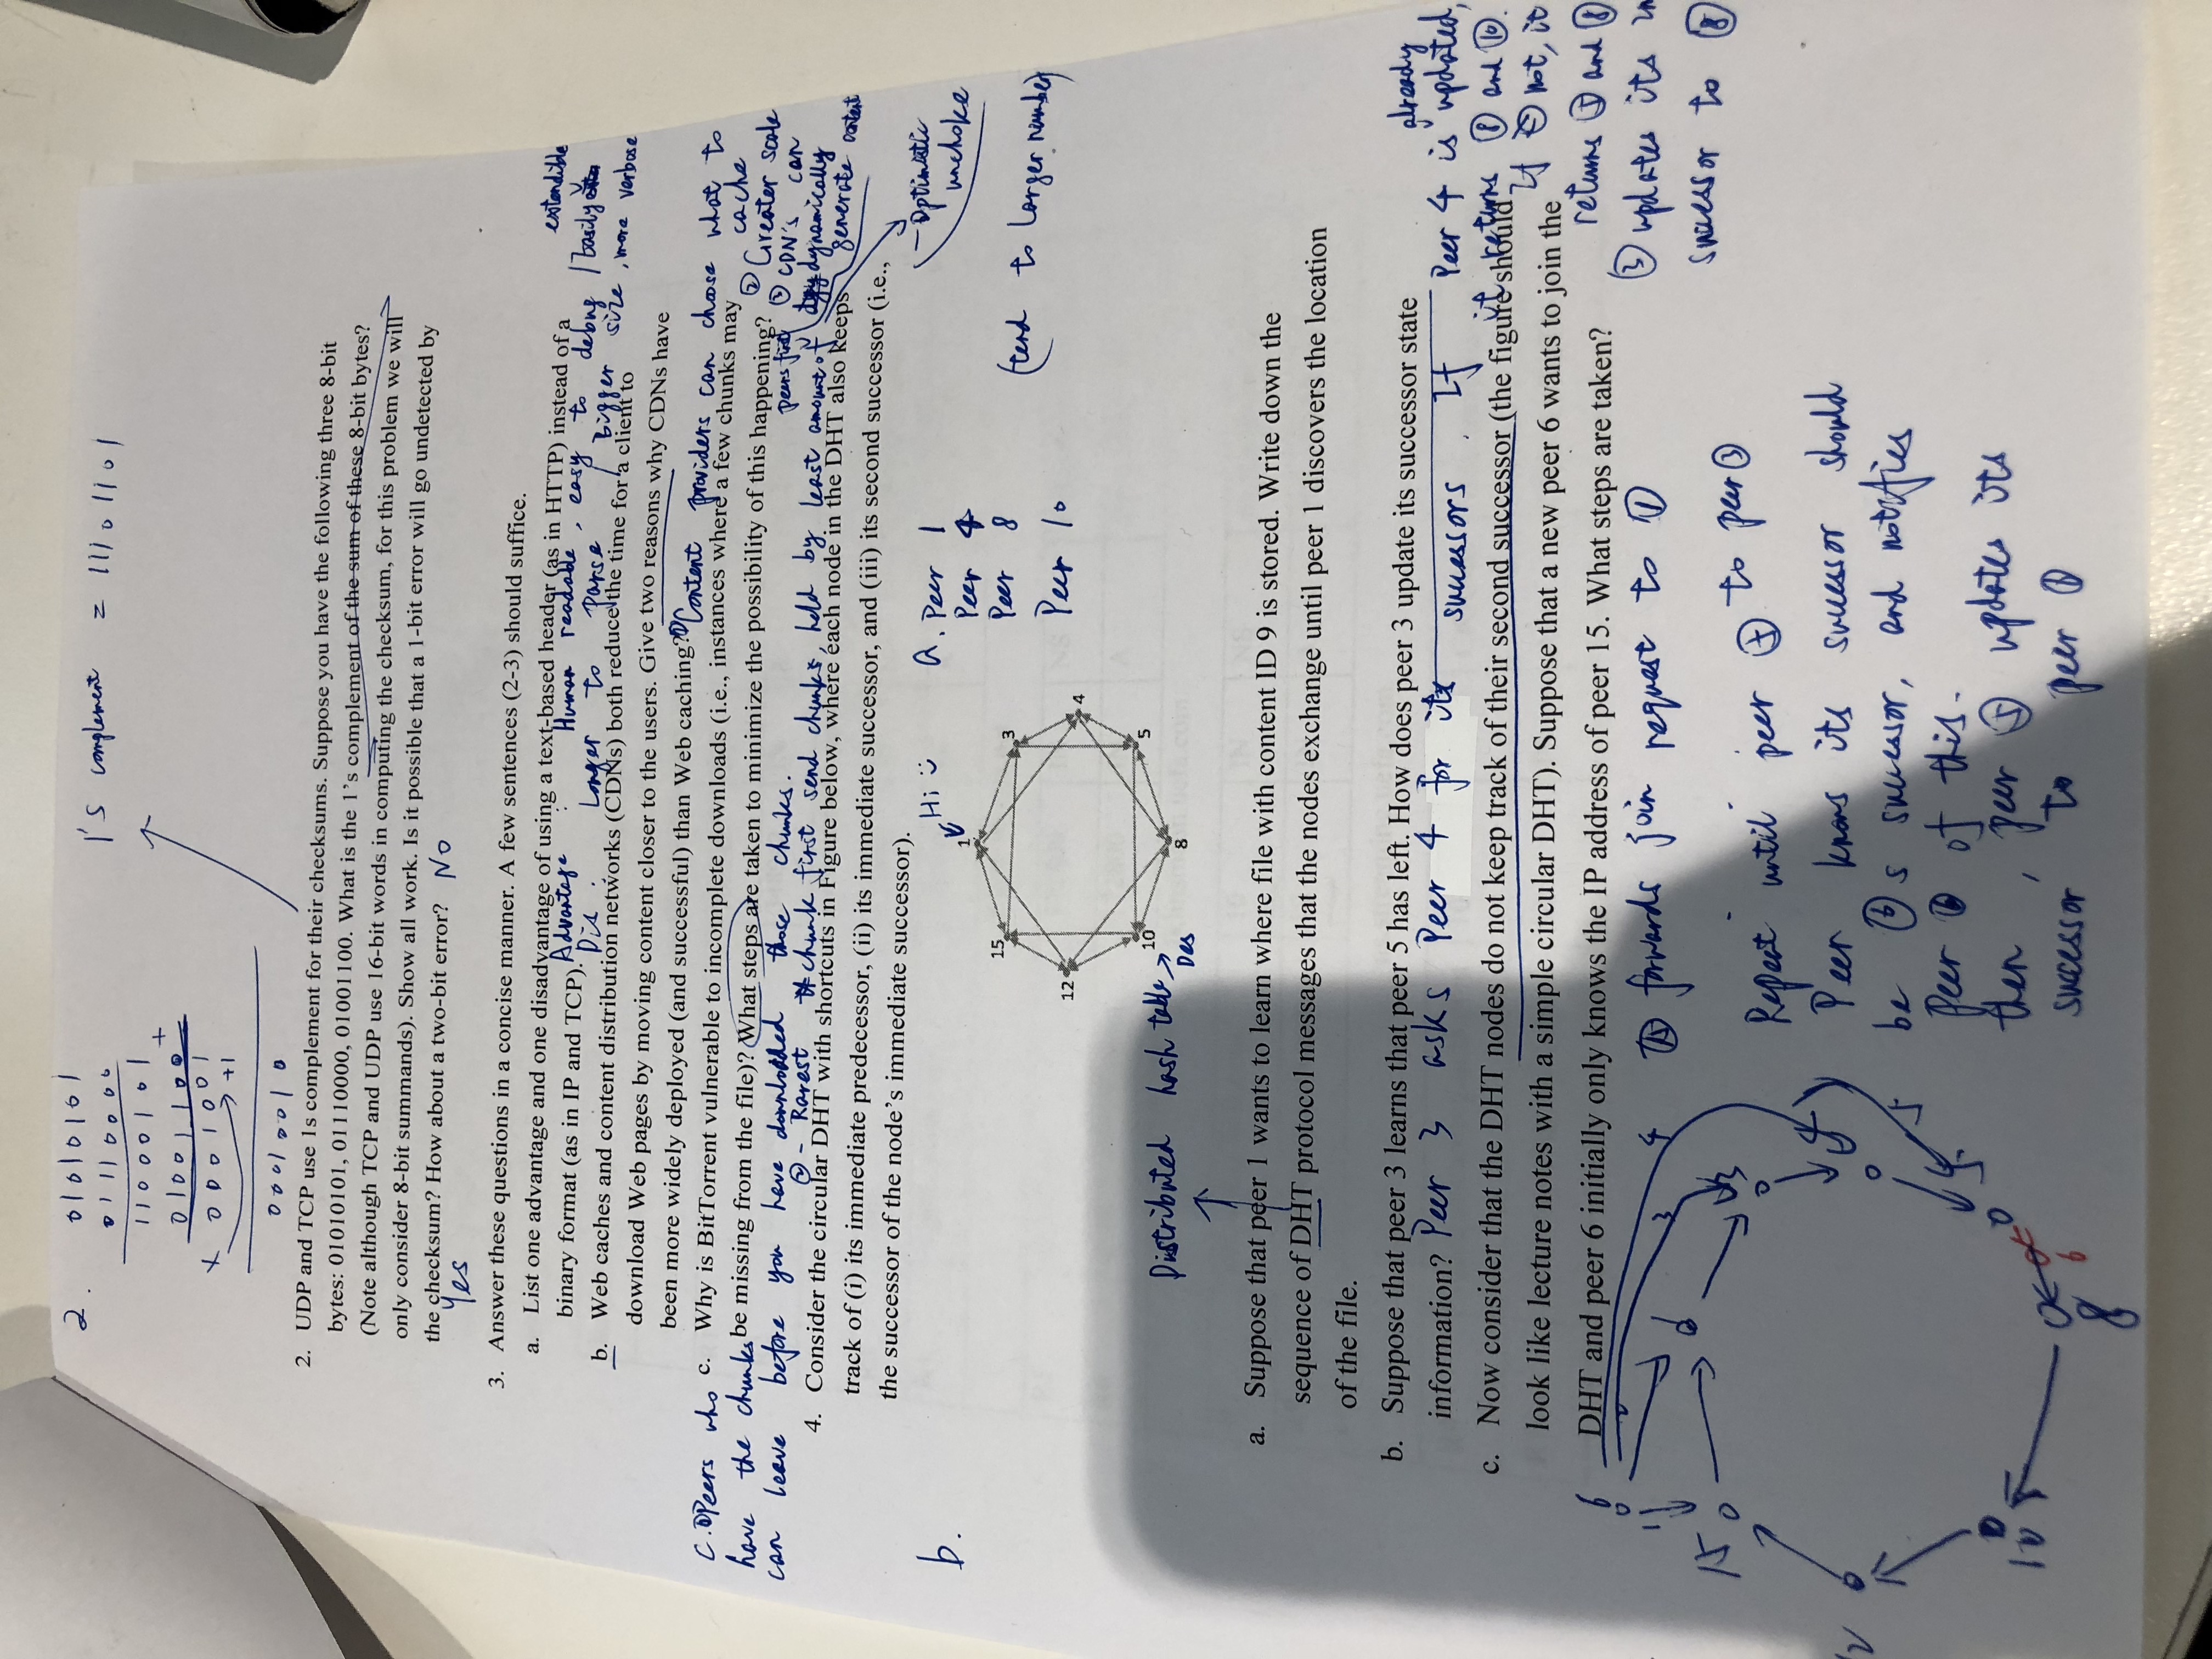 2.
01010101
01110000
11000101
+
01001100
0001001
+1
00010010
1's complement = 11101101
2. UDP and TCP use 1s complement for their checksums. Suppose you have the following three 8-bit
bytes: 01010101, 01110000, 01001100. What is the 1's complement of the sum of these 8-bit bytes?
(Note although TCP and UDP use 16-bit words in computing the checksum, for this problem we will
only consider 8-bit summands). Show all work. Is it possible that a 1-bit error will go undetected by
the checksum? How about a two-bit error? No
Yes
3. Answer these questions in a concise manner. A few sentences (2-3) should suffice.
a. List one advantage and one disadvantage of using a text-based header (as in HTTP) instead of a
binary format (as in IP and TCP).
Advantage : Human readable, easy to debug / Easily extendible
Dis : Longer to Parse / Bigger size, more verbose
b. Web caches and content distribution networks (CDNs) both reduce the time for a client to
download Web pages by moving content closer to the users. Give two reasons why CDNs have
been more widely deployed (and successful) than Web caching?
① Content providers can choose what to
cache
② Greater scale
③ CDN's can
dynamically
generate content
c. Why is BitTorrent vulnerable to incomplete downloads (i.e., instances where a few chunks may
be missing from the file)? What steps are taken to minimize the possibility of this happening?
C. ① Peers who
have the chunks
can leave before you have downloaded those chunks.
② - Rarest chunk first send chunks, held by least amount of peers first
- Optimistic
unchoke
4. Consider the circular DHT with shortcuts in Figure below, where each node in the DHT also keeps
track of (i) its immediate predecessor, (ii) its immediate successor, and (iii) its second successor (i.e.,
the successor of the node's immediate successor).
b.
Hi
1
15
3
12
4
10
5
8
Des
Distributed hash table
a. Peer 1
Peer 4
Peer 8
Peer 10
(tend to larger number)
a. Suppose that peer 1 wants to learn where file with content ID 9 is stored. Write down the
sequence of DHT protocol messages that the nodes exchange until peer 1 discovers the location
of the file.
b. Suppose that peer 3 learns that peer 5 has left. How does peer 3 update its successor state
information?
Peer 3 asks Peer 4 for its successors. If Peer 4 is already updated,
it returns ⑧ and ⑩.
If not, it
returns ⑤ and ⑧
③ updates its
successor to ⑧
c. Now consider that the DHT nodes do not keep track of their second successor (the figure should
look like lecture notes with a simple circular DHT). Suppose that a new peer 6 wants to join the
DHT and peer 6 initially only knows the IP address of peer 15. What steps are taken?
⑮ forwards join request to ①
Repeat until peer ⑤ to peer ③
Peer knows its successor should
be ⑥s successor, and notifies
Peer ⑥ of this.
then, peer ⑤ updates its
successor to peer ⑥
6
1
2
3
4
15
1
3
4
5
5
12
10
8
6